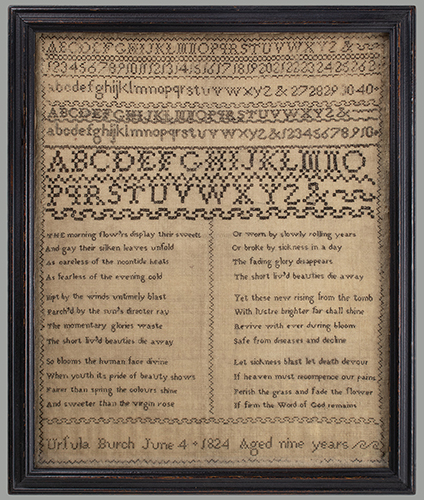 ABCDEFGHIJKLMNOPQRSTUVWXYZ&
1 2 3 4 5 6 7 8 9 10 11 12 13 14 15 16 17 18 19 20 21 22 23 24 25 26
abcdefghijklmnopqrstuvwxyz & 27 28 29 30 40
ABCDEFGHIJKLMNOPQRSTUVWXYZ&
abcdefghijklmnopqrstuvwxyz & 1 2 3 4 5 6 7 8 9 10
ABCDEFGHIJKLMNO
PQRSTUVWXYZ&
THE morning flow'rs display their sweets
And gay their silken leaves unfold
As careless of the noontide heats
As fearless of the evening cold
Nipt by the winds untimely blast
Parch'd by the sun's directer ray
The momentary glories waste
The short liv'd beauties die away
So blooms the human face divine
When youth its pride of beauty shows
Fairer than spring the colours shine
And sweeter than the virgin rose
Or worn by slowly rolling years
Or broke by sickness in a day
The fading glory disappears
The short liv'd beauties die away
Yet these new rising from the tomb
With lustre brighter far shall shine
Revive with ever during bloom
Safe from diseases and decline
Let sickness blast let death devour
If heaven must recompence our pains
Perish the grass and fade the flower
If firm the Word of God remains
Ursula Burch June 4 1824 Aged nine years